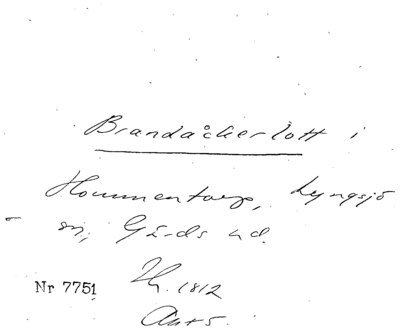 Brandåkerlott i
Hommentorp, Lyngsjö
sn, Gärds hd.
Nr 7751
1812